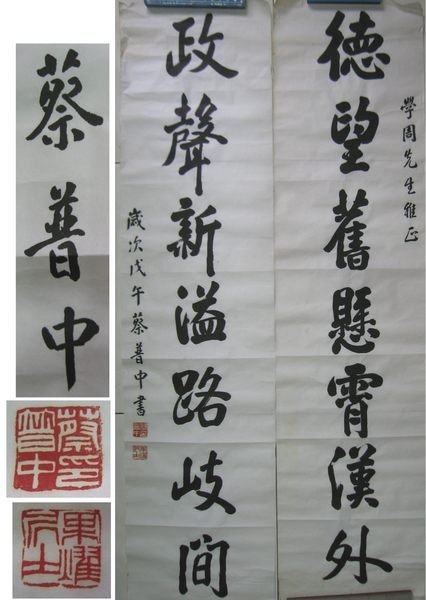 學周先生雅正
德望舊懸霄漢外
政聲新溢路歧間
歲次戊午蔡普中書
蔡普中
蔡普中印
東燿居士